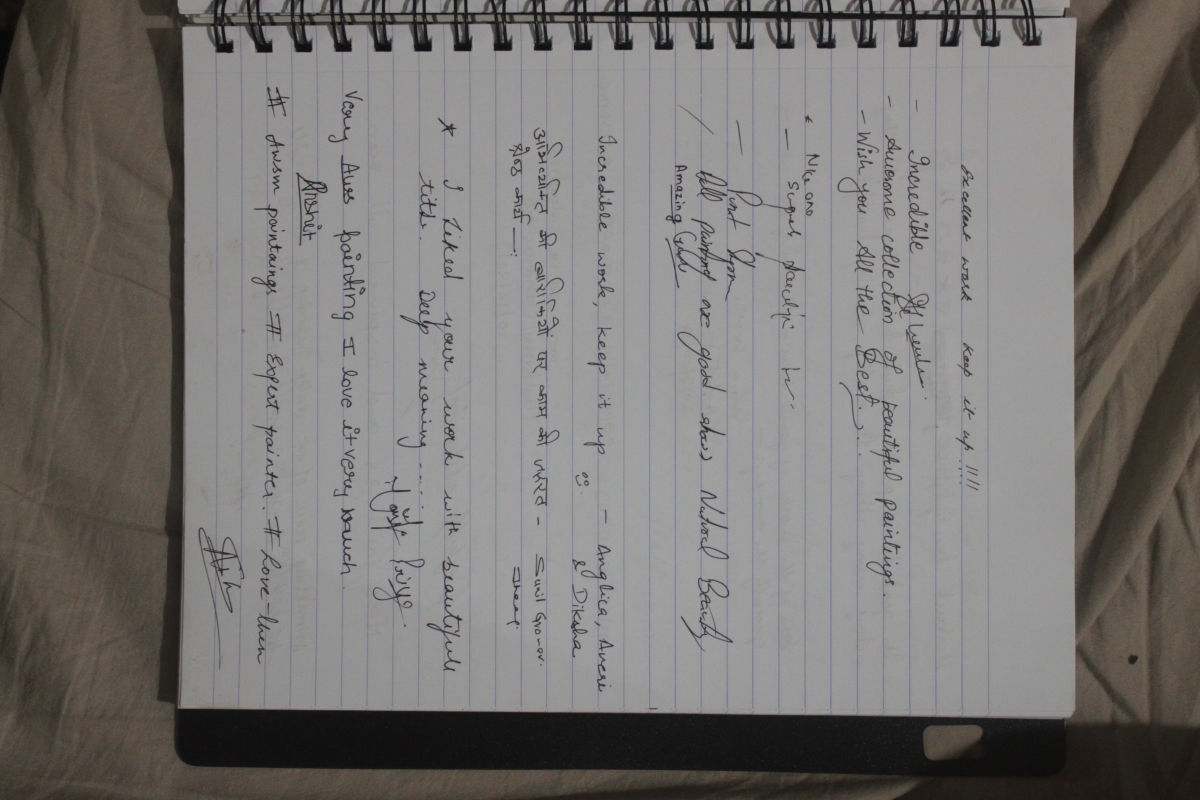 excellent work keep it up !!!!
- Incredible
- Awesome collection of beautiful paintings.
- Wish you All the Best.
Nice one
All paintings are good shows Natural Beauty
Amazing
Incredible work, keep it up - Anglica, Averi
& Diksha
की बारीकियों पर काम की जरूरत - Sunil Grover
श्रेष्ठ कार्य
* I Liked your work with beautifull
title. Deep meaning ......
Priya.
Very Aws painting I love it very much.
Arshit
# Awsm paintaings # Expert painter. # love-them